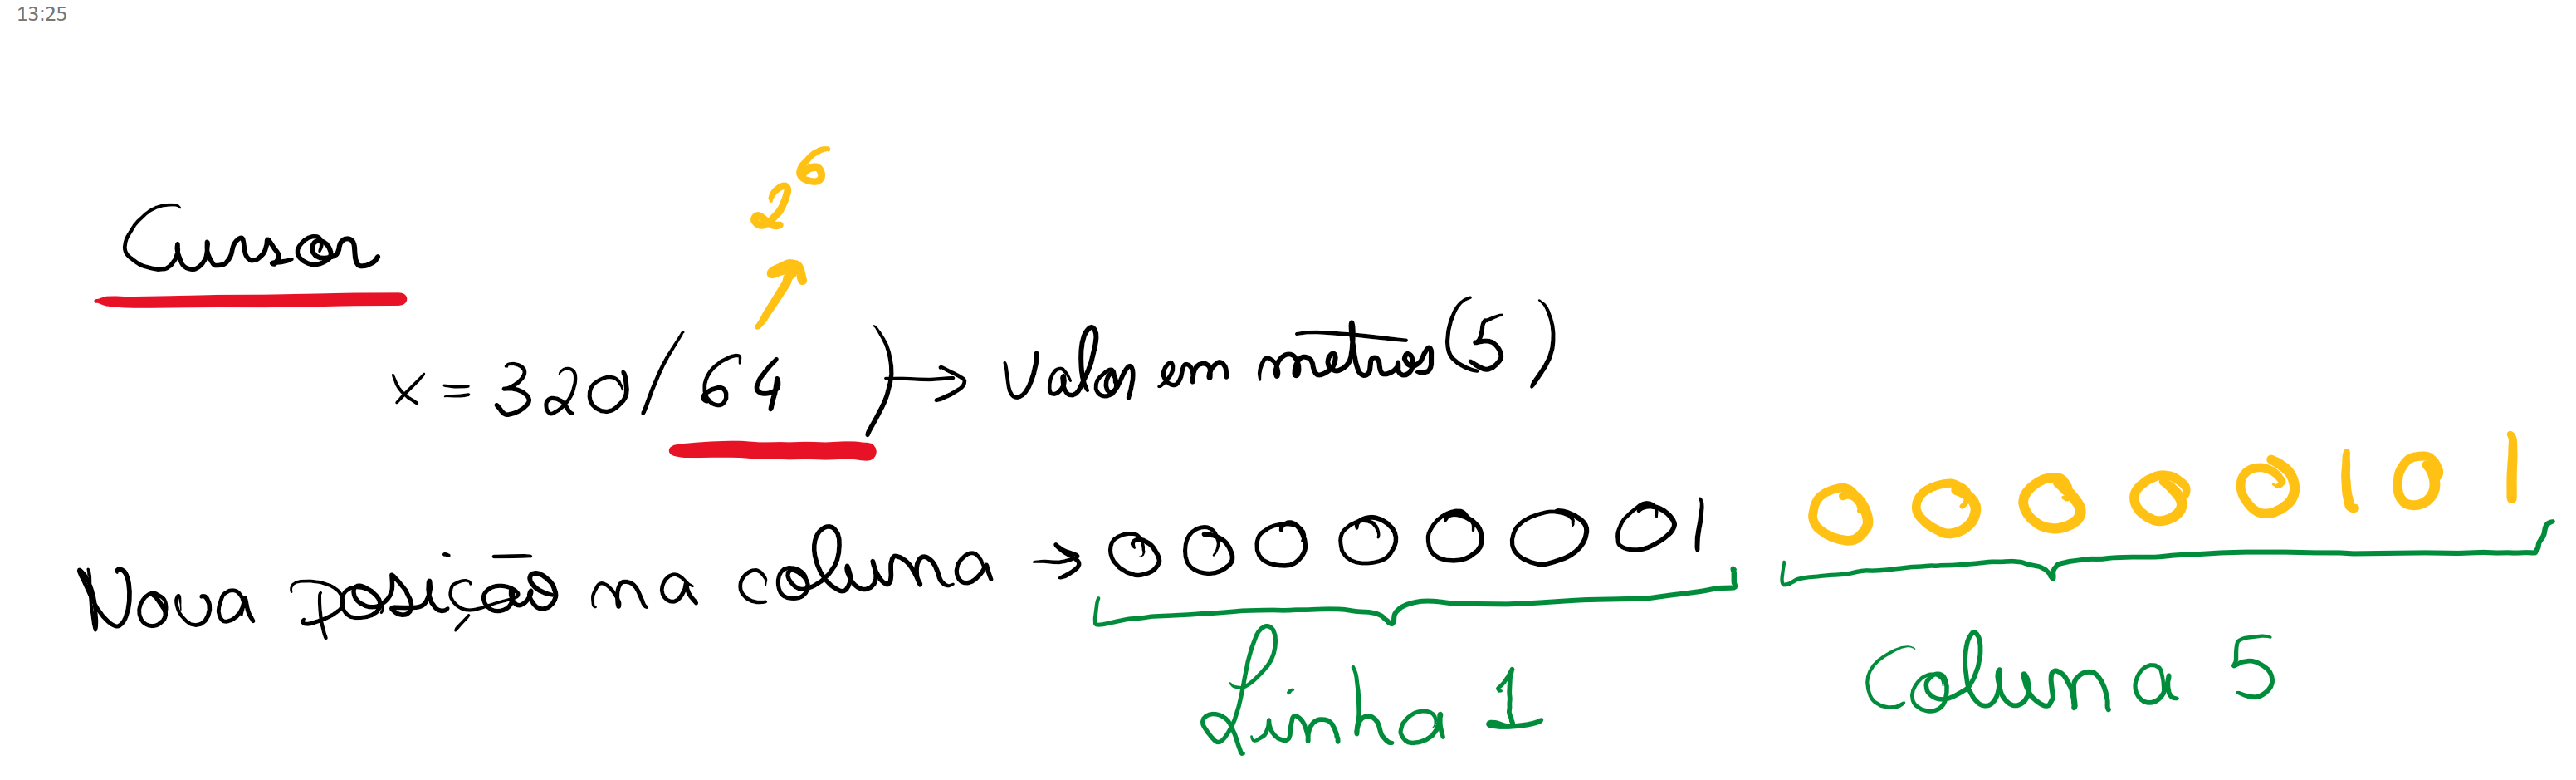 13:25
2⁶
Cursor
x = 320/64) → Valor em metros (5)
Nova posição na coluna → 00000001 00000101
Linha 1 Coluna 5